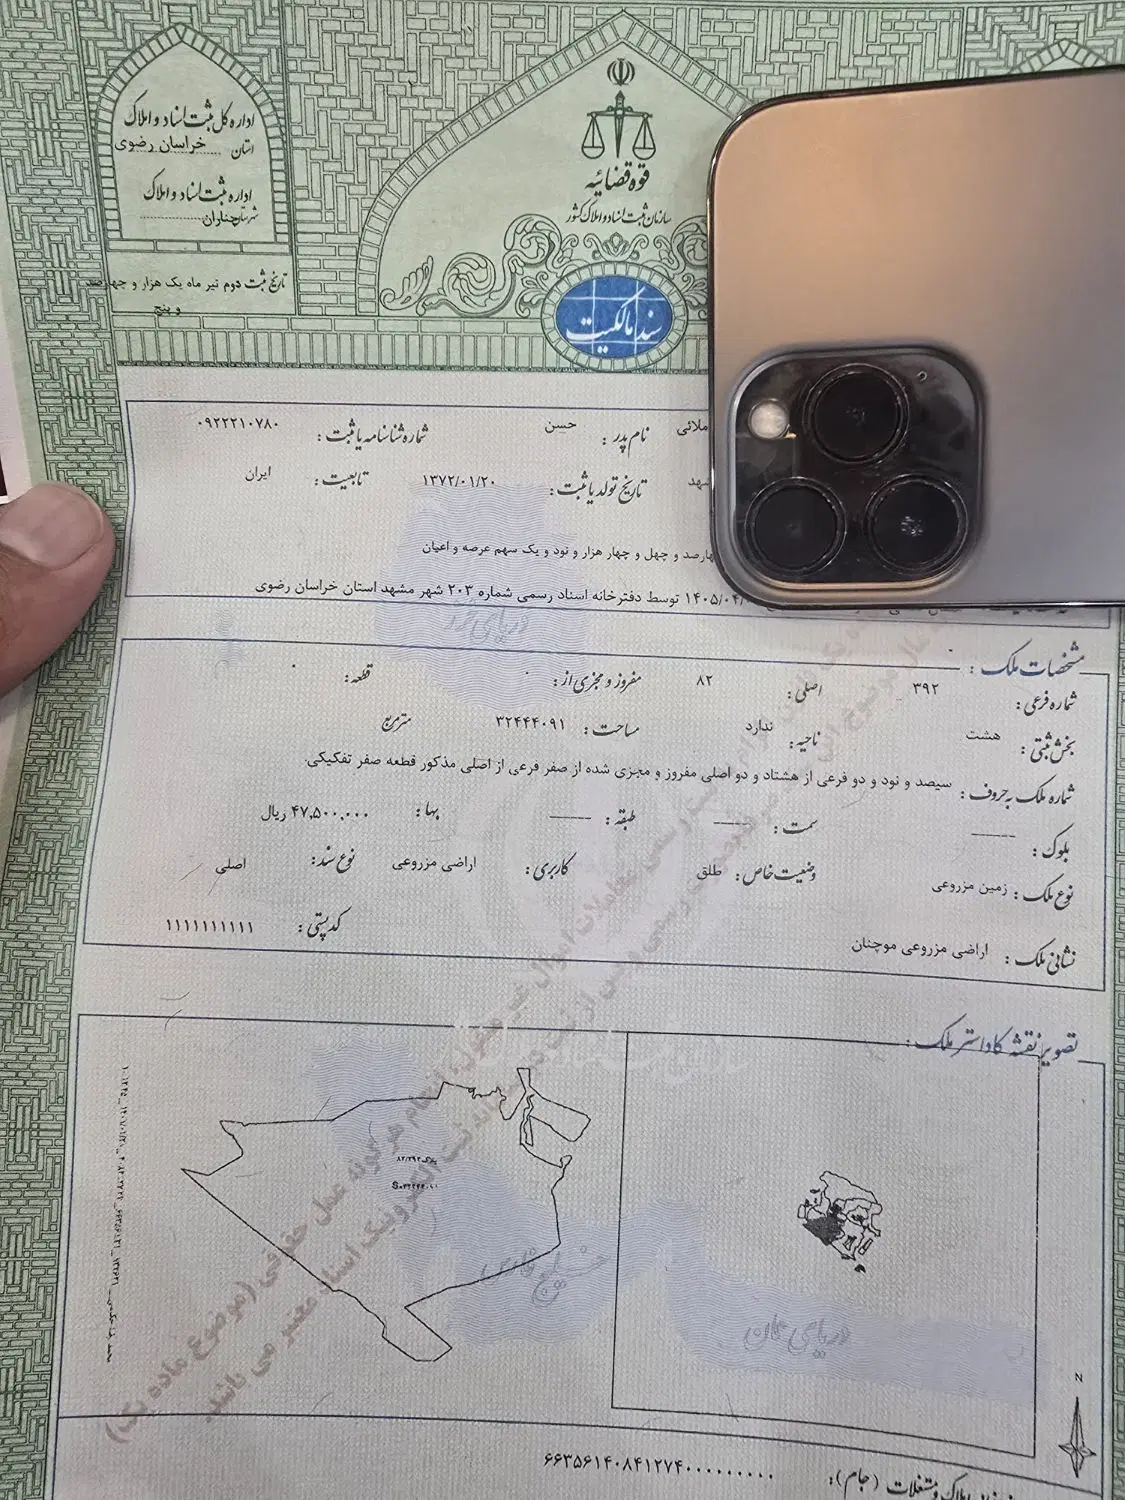 اداره کل ثبت اسناد و املاک
استان خراسان رضوی
اداره ثبت اسناد و املاک
شهرستان چناران
تاریخ ثبت دوم تیر ماه یک هزار و چهارصد
و پنج
قوه قضائیه
سازمان ثبت اسناد و املاک کشور
سند مالکیت
ملائی نام پدر : حسن شماره شناسنامه یا ثبت : ۰۹۲۲۲۱۰۷۸۰
تاریخ تولد یا ثبت : ۱۳۷۲/۰۱/۲۰ تابعیت : ایران
چهل و چهار هزار و نود و یک سهم عرصه و اعیان
توسط دفترخانه اسناد رسمی شماره ۲۰۳ شهر مشهد استان خراسان رضوی
مشخصات ملک :
شماره فرعی : ۳۹۲ اصلی : ۸۲ مفروز و مجزی از : ۰ قطعه : ۰
بخش ثبتی : هشت ناحیه : ندارد مساحت : ۳۲۴۴۴۰۹۱ مترمربع
شماره ملک به حروف : سیصد و نود و دو فرعی از هشتاد و دو اصلی مفروز و مجزی شده از صفر فرعی از اصلی مذکور قطعه صفر تفکیکی.
بلوک : سمت : طبقه : بها : ۴۷,۵۰۰,۰۰۰ ریال
نوع ملک : زمین مزروعی وضعیت خاص : طلق کاربری : اراضی مزروعی نوع سند : اصلی
نشانی ملک : اراضی مزروعی موچنان کد پستی : ۱۱۱۱۱۱۱۱۱۱
تصویر نقشه کاداستر ملک :
خلیج فارس
دریای عمان
N
۶۶۳۵۶۱۴۰۸۴۱۲۷۴۰۰۰۰۰۰۰۰۰۰